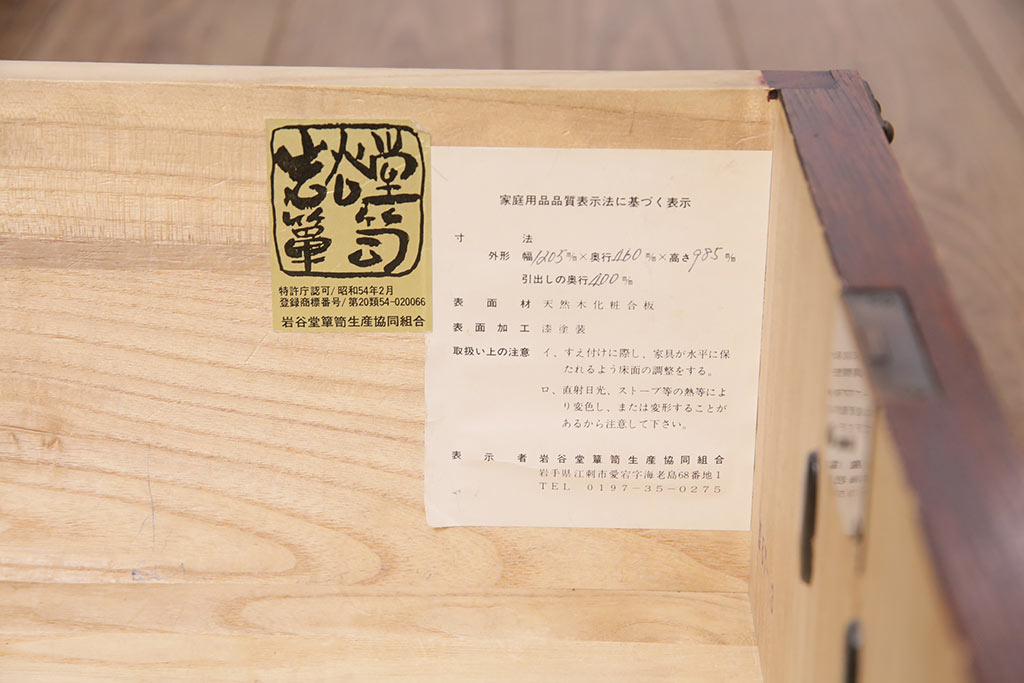 岩谷堂
簞笥
特許庁認可/昭和54年2月
登録商標番号/第20類54-020066
岩谷堂簞笥生産協同組合
家庭用品品質表示法に基づく表示
寸法
外形 幅1205㎜×奥行460㎜×高さ985㎜
引出しの奥行400㎜
表面材 天然木化粧合板
表面加工 漆塗装
取扱い上の注意 イ、すえ付けに際し、家具が水平に保
たれるよう床面の調整をする。
ロ、直射日光、ストーブ等の熱等によ
り変色し、または変形することが
あるから注意して下さい。
表示者 岩谷堂簞笥生産協同組合
岩手県江刺市愛宕字海老島68番地1
TEL 0197-35-0275